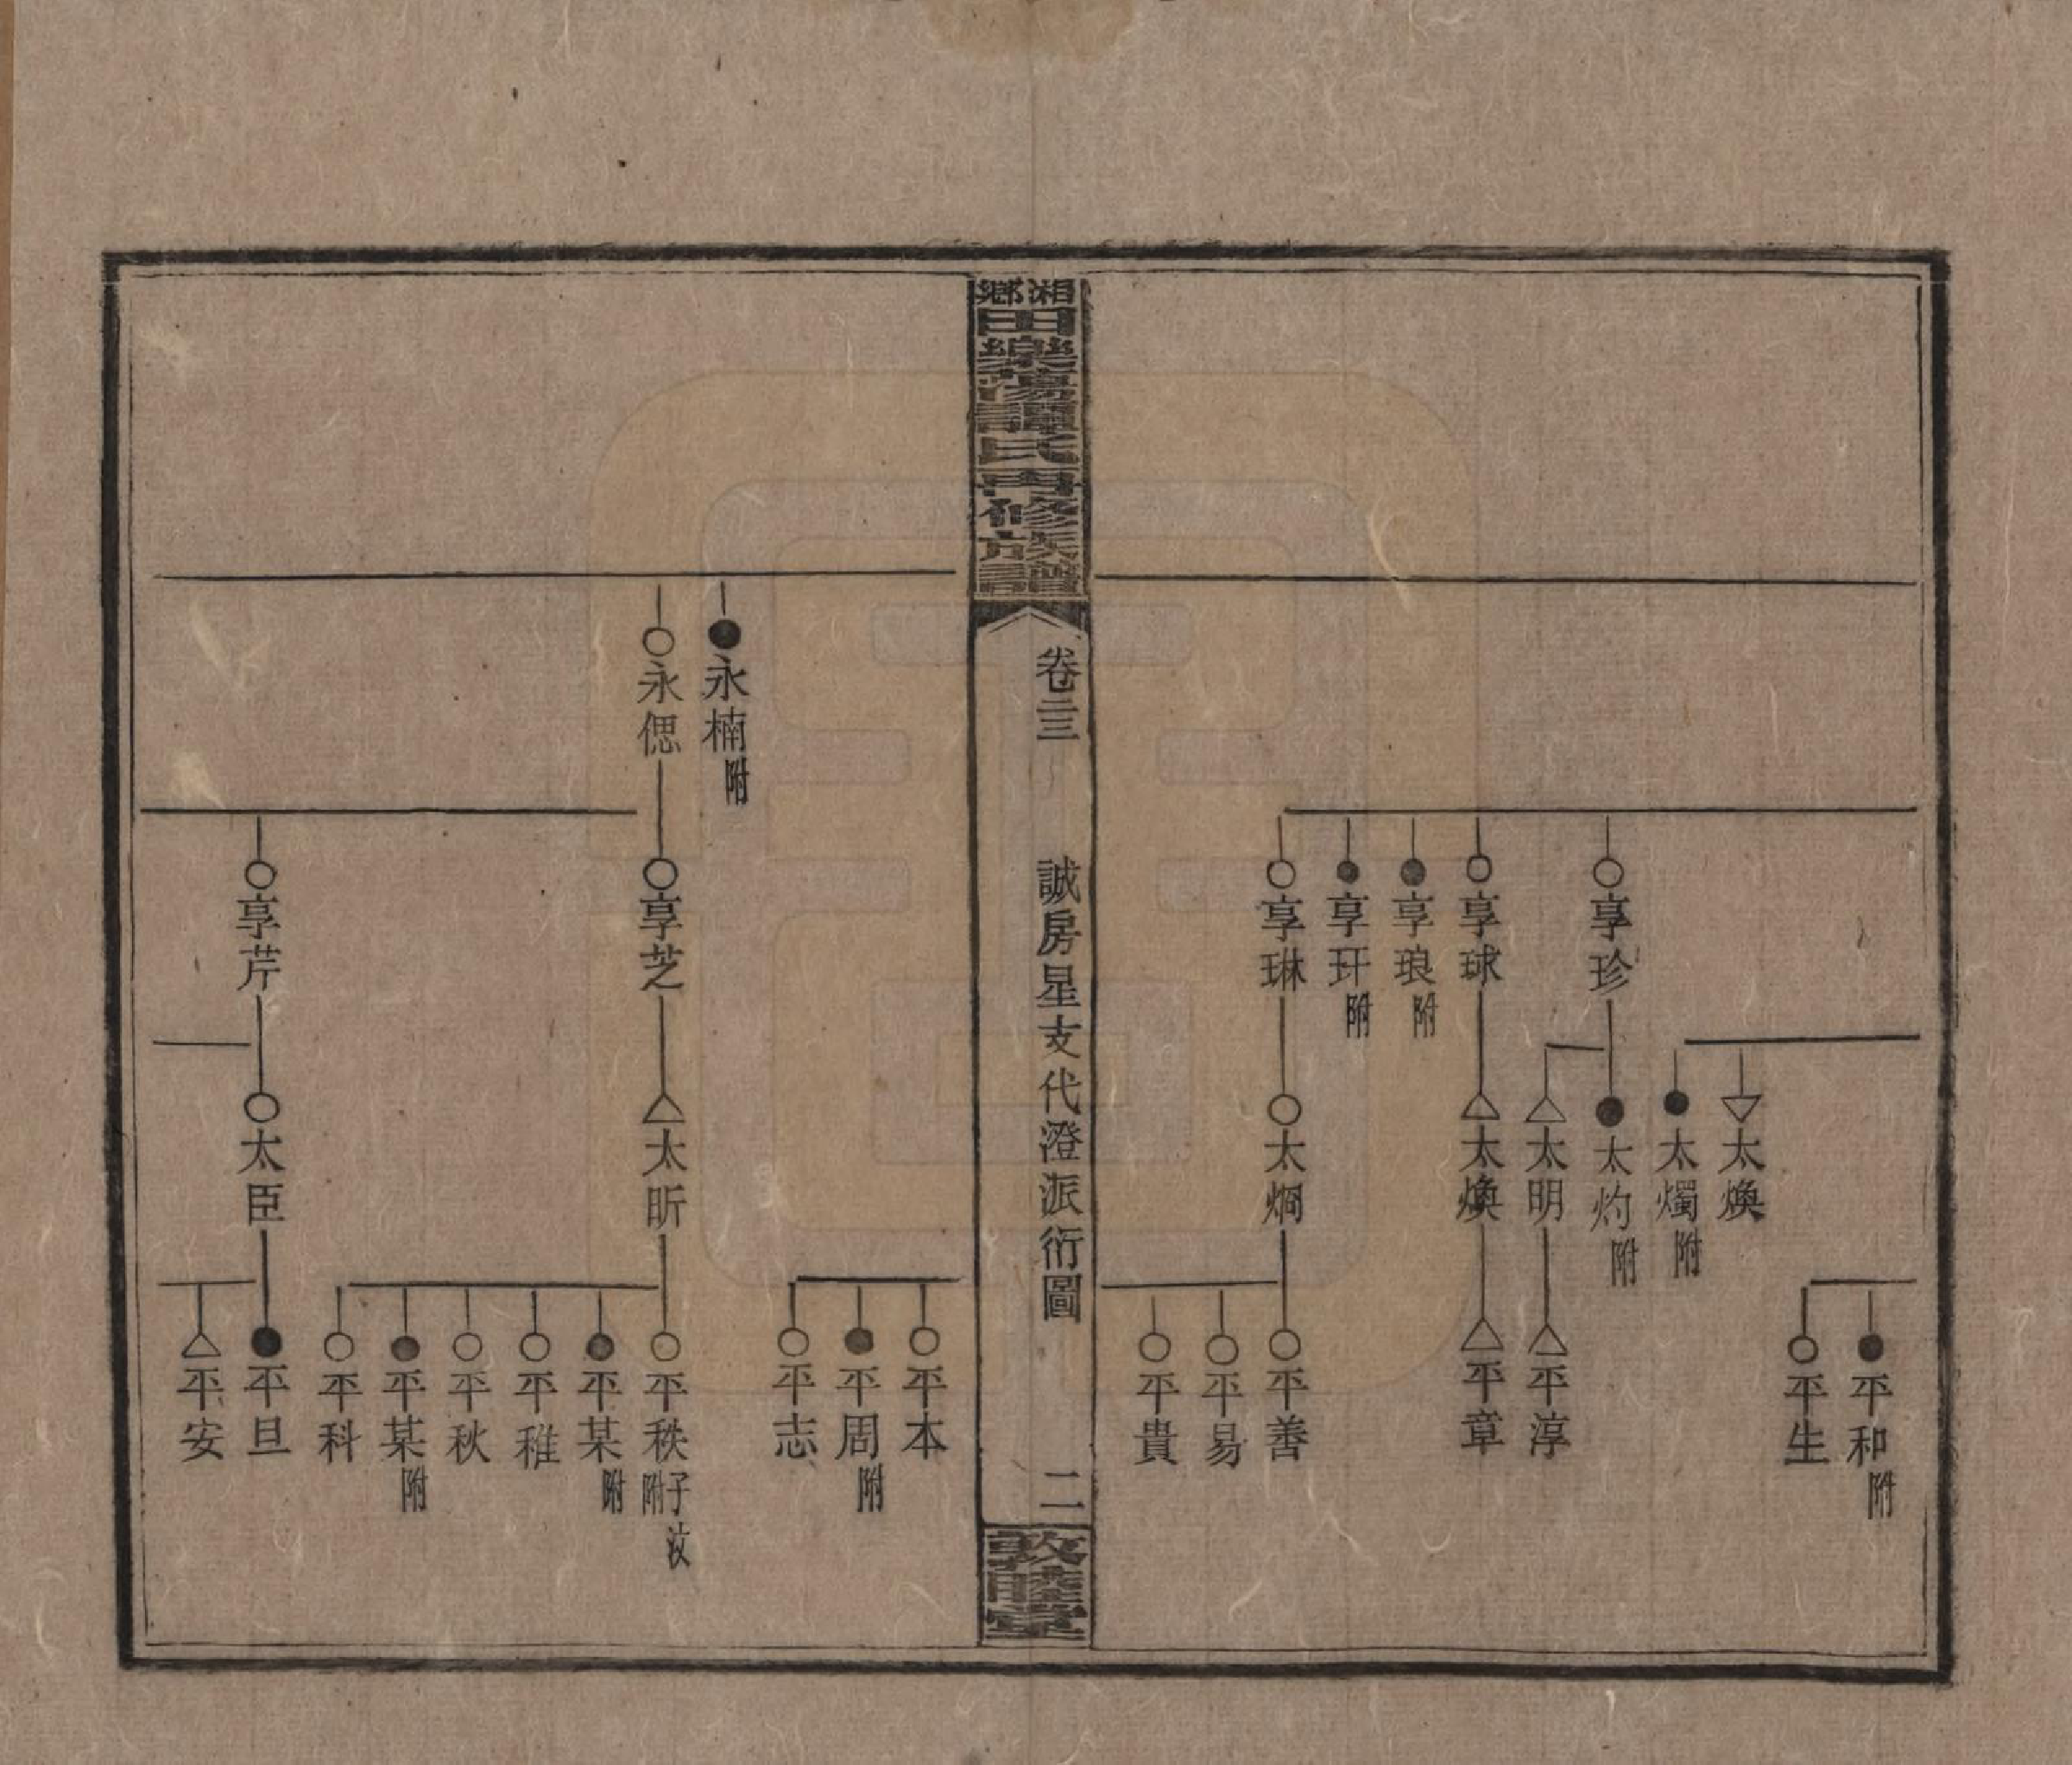 平和附
平生
太煥
太燭附
享珍
太灼附
太明
平淳
享球
太煥
平章
享琅附
享玕附
享琳
太烱
平善
平易
平貴
湘鄉
田樂蕩譚氏再修族譜
卷三
誠房星支代澄派衍圖
二
敦睦堂
平本
平周附
平志
永楠附
永偲
享芝
太昕
平秩子汶附
平某附
平稚
平秋
平某附
平科
享芹
太臣
平旦
平安